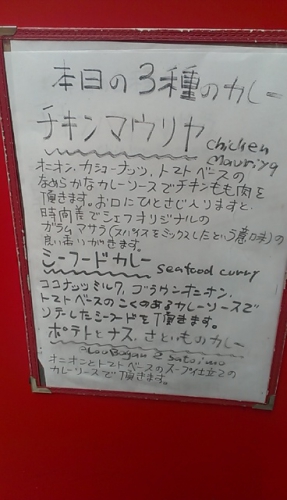 本日の3種のカレー
チキンマウリヤ
chicken
Mauriya
オニオン、カシューナッツ、トマトベースの
なめらかなカレーソースでチキンもも肉を
頂きます。お口にひとさじ入りますと、
時間差でシェフオリジナルの
ガラムマサラ(スパイスをミックスしたという意味)の
良い香りがきます。
シーフードカレー
seafood curry
ココナッツミルク、ブラウンオニオン、
トマトベースのこくのあるカレーソースで
ソテしたシーフードを頂きます。
ポテトとナス、さといものカレー
satoimo
オニオンとトマトベースのスープ仕立ての
カレーソースで頂きます。